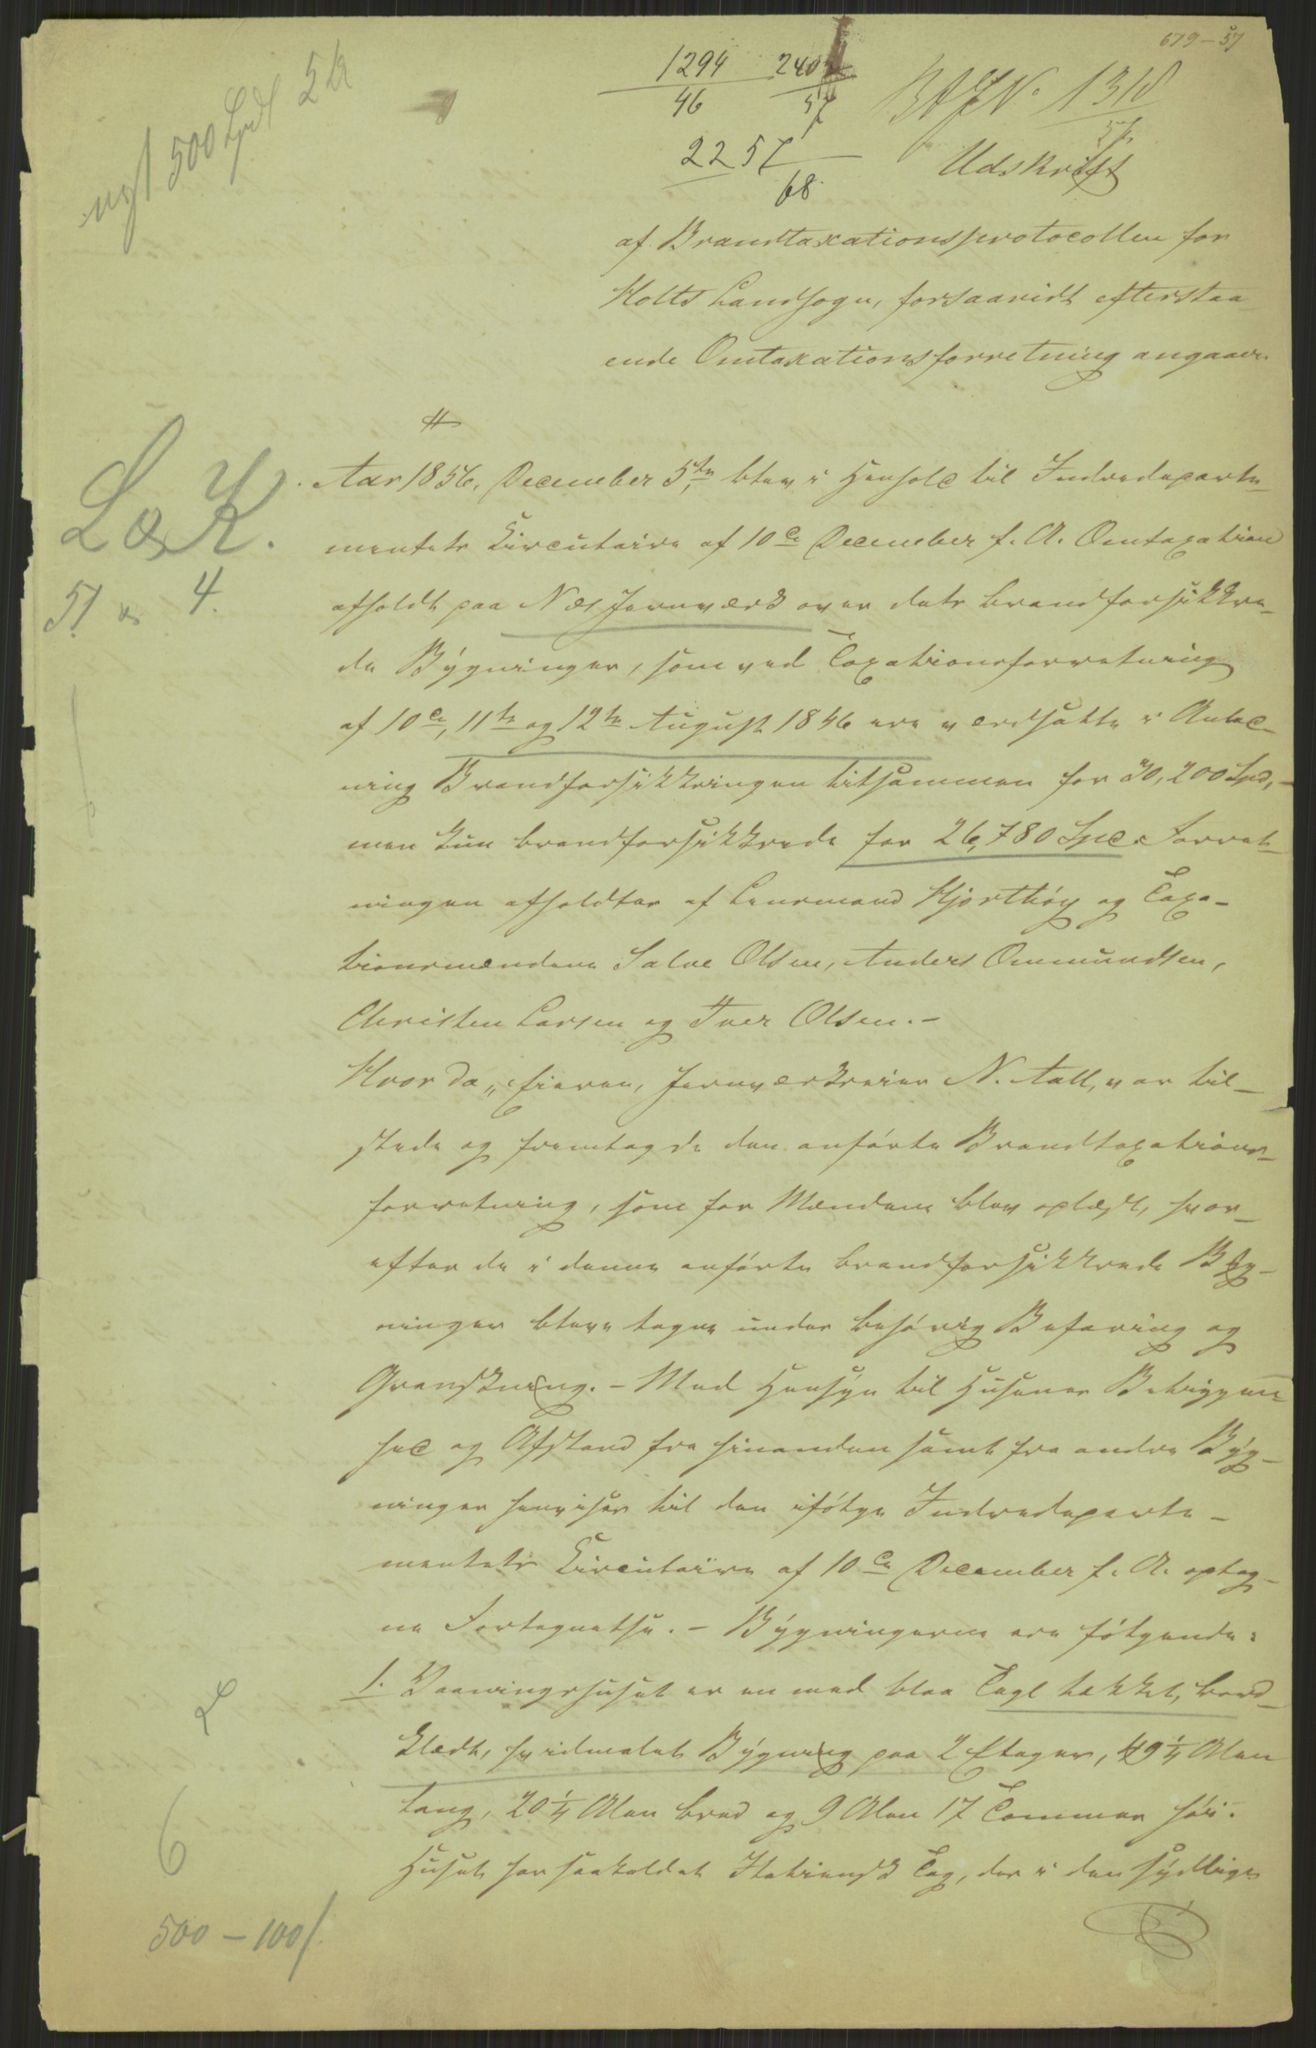 679–57
1294 240
46 57
2257
68
B A J N. 1318
57
Udskrift
500 Spdl
af Brandtaxationsprotocollen for
Holts Landsogn, forsaavidt efterstaa-
ende Omtaxationsforretning angaaer.
Aar 1856, December 5te, blev i Henhold til Indredeparte-
mentets Circulaire af 10de December f. A. Omtaxation
afholdt paa Næs Jernværk over dets brandforsikkre-
de Bygninger, som ved Taxationsforretning
af 10de, 11te og 12te August 1846 ere værdsatte i Anled-
ning Brandforsikkringen tilsammen for 30,200 Spd,
men kun brandforsikkrede for 26,780 Spd. Forret-
ningen afholdtes af Lensmand Hjorthöy og Taxa-
tionsmændene Salve Olsen, Anders Ommundsen,
Christen Larsen og Iver Olsen.–
Hvor da, Eieren, Jernværkseier N. Aall, var til-
stede og fremlagde den anförte Brandtaxations-
forretning, som for Mændene blev oplæst, hvor-
efter de i denne anförte brandforsikkrede Byg-
ninger bleve tagne under behörig Befaring og
Granskning. – Med Hensyn til Husenes Beliggen-
hed og Afstand fra hinanden samt fra andre Byg-
ninger henvises til den ifölge Indredeparte-
mentets Circulaire af 10de December f. A. optag-
ne Fortegnelse. – Bygningerne ere fölgende:
1. Vaaningshuset er en med blaa Tagl tækket, bord-
klædt, hvidmalet Bygning paa 2 Etager, 49 1/4 Alen
lang, 20 1/4 Alen bred og 9 Alen 17 Tommer höi.
Huset har saakaldet Italiensk Tag, der i den sydlige
L & K.
51 & 4.
L
6
500 – 100/.